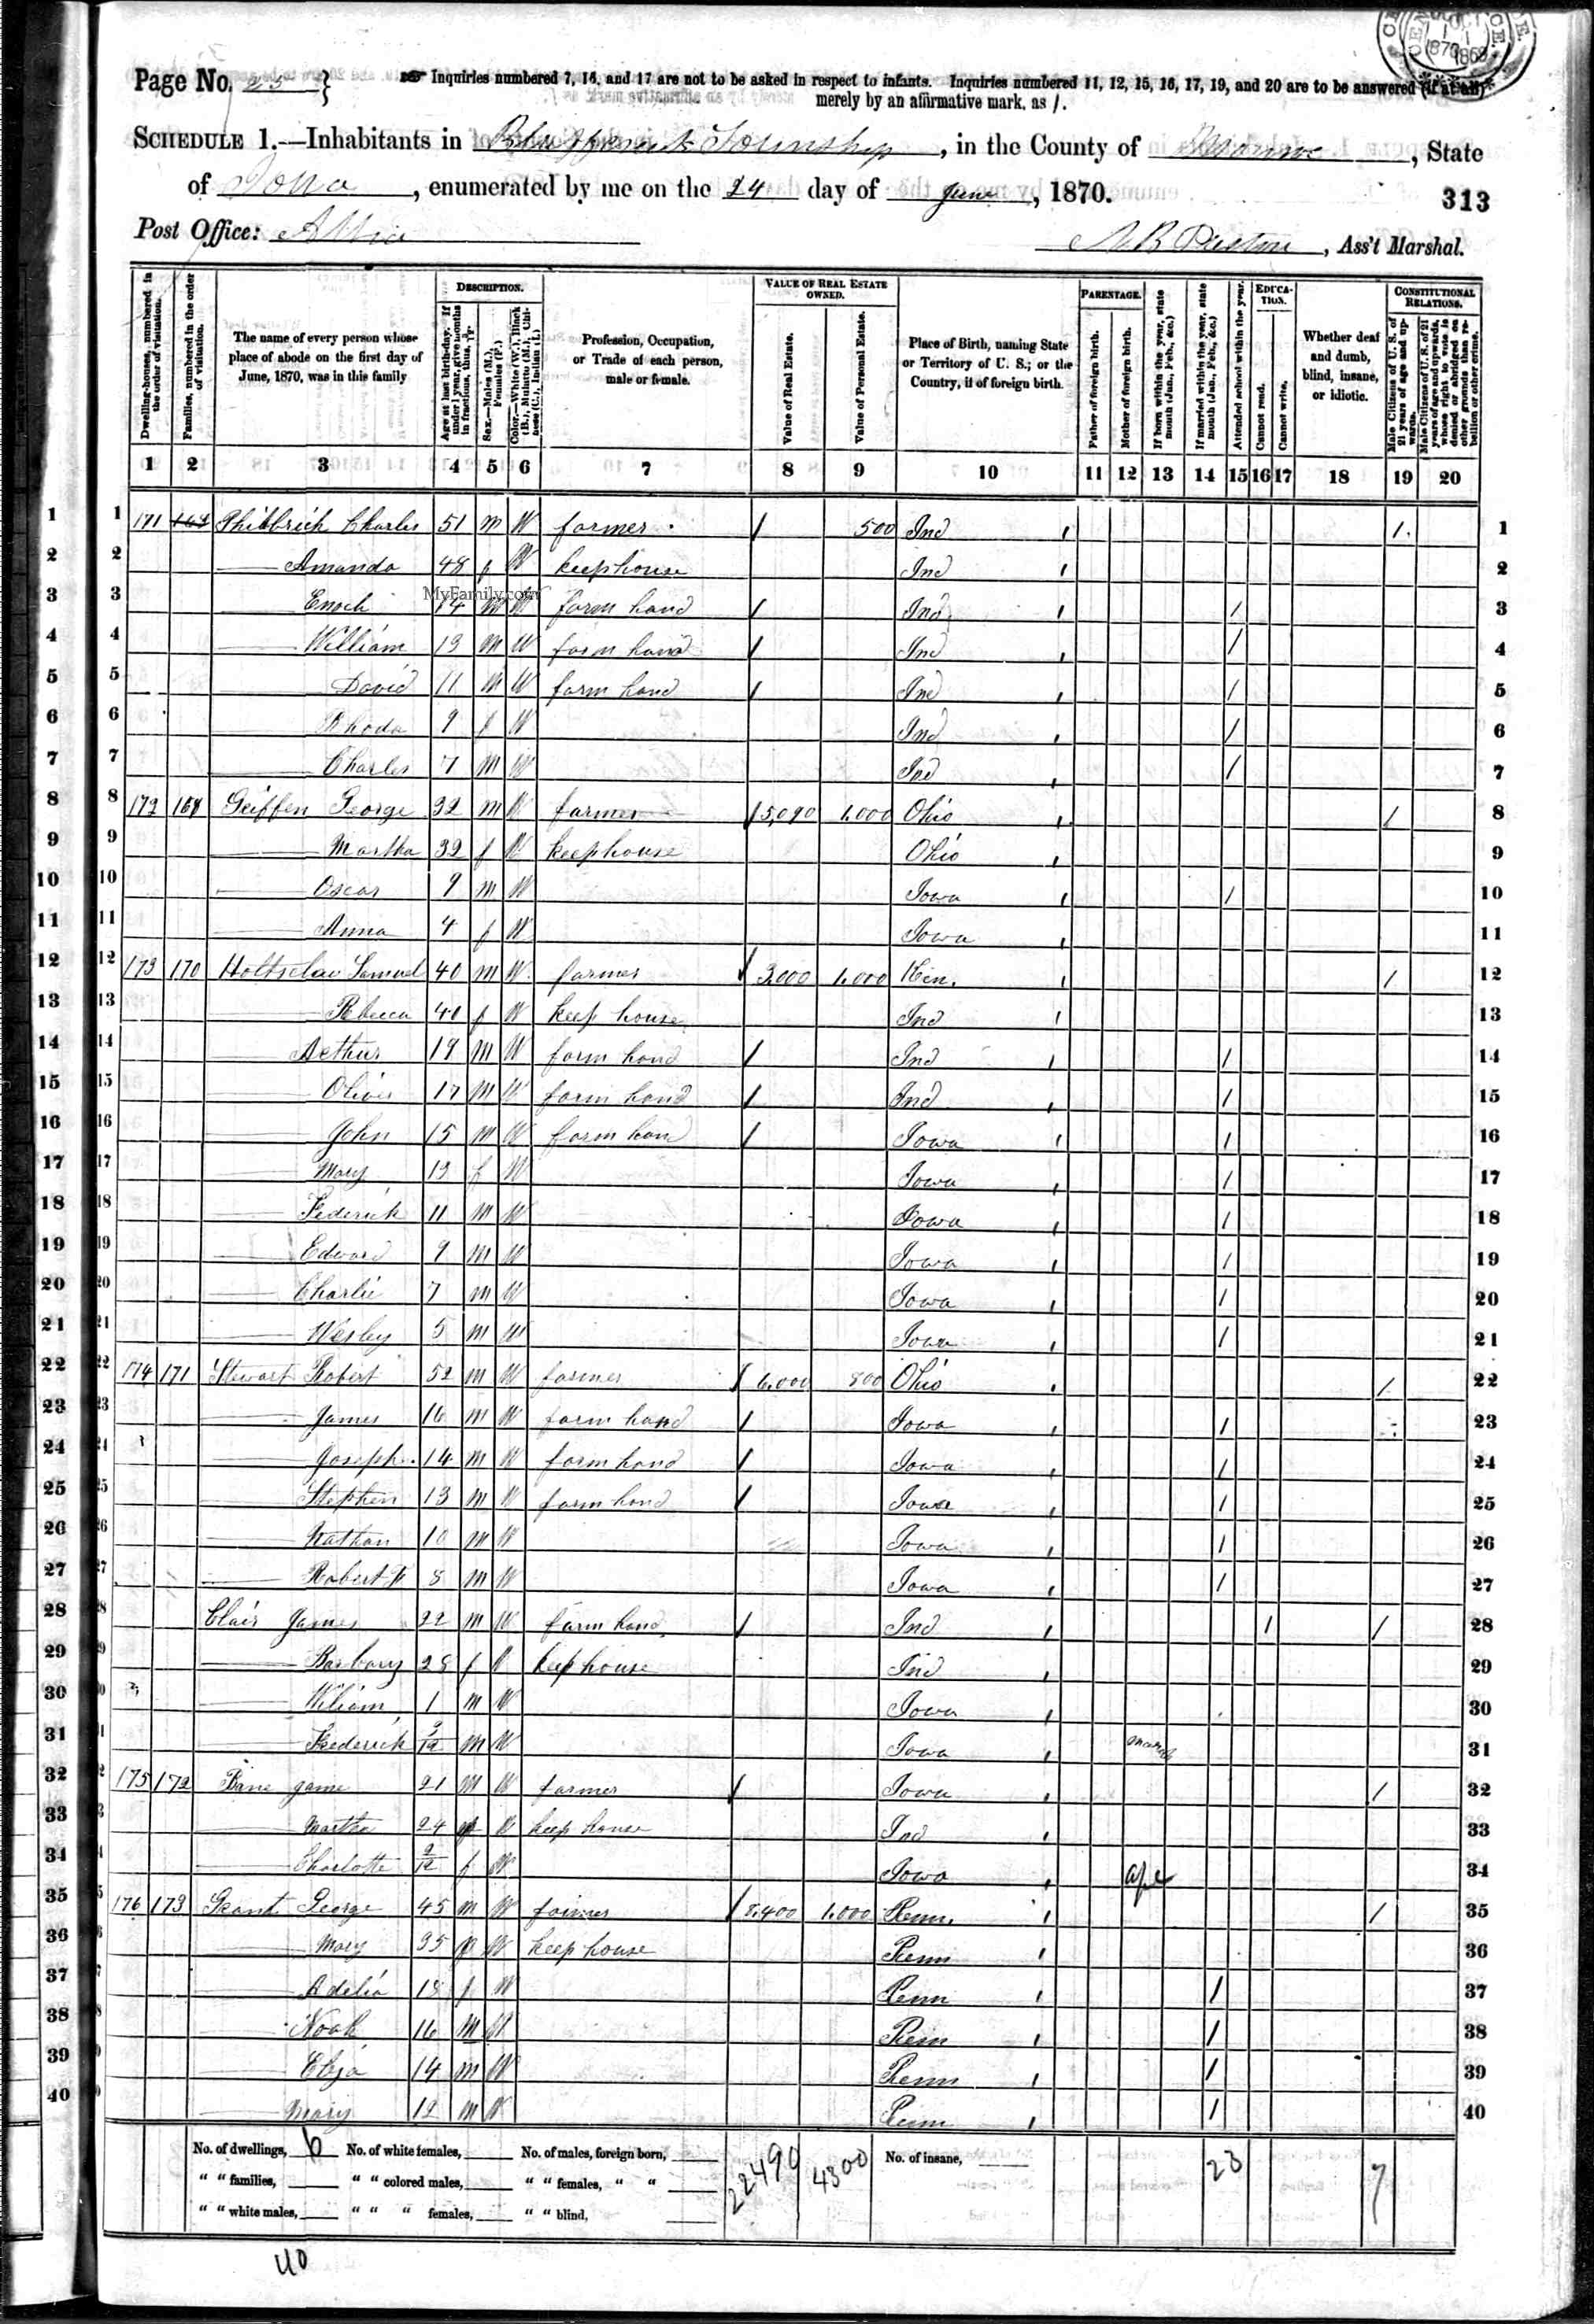 Page No. 25 }
Inquiries numbered 7, 16, and 17 are not to be asked in respect to infants. Inquiries numbered 11, 12, 15, 16, 17, 19, and 20 are to be answered (if at all)
merely by an affirmative mark, as /.
SCHEDULE 1.—Inhabitants in Township, in the County of Monroe, State
of Iowa, enumerated by me on the 24 day of June, 1870.
313
Post Office: Albia
Ass't Marshal.
Dwelling-houses, numbered in the order of visitation.
Families, numbered in the order of visitation.
The name of every person whose place of abode on the first day of June, 1870, was in this family
DESCRIPTION.
Age at last birth-day. If under 1 year, give months in fractions, thus,
Sex.—Males (M.), Females (F.)
Color.—White (W.), Black (B.), Mulatto (M.), Chinese (C.), Indian (I.)
Profession, Occupation, or Trade of each person, male or female.
VALUE OF REAL ESTATE OWNED.
Value of Real Estate.
Value of Personal Estate.
Place of Birth, naming State or Territory of U. S.; or the Country, if of foreign birth.
PARENTAGE.
Father of foreign birth.
Mother of foreign birth.
If born within the year, state month (Jan., Feb., &c.)
If married within the year, state month (Jan., Feb., &c.)
Attended school within the year.
EDUCATION.
Cannot read.
Cannot write.
Whether deaf and dumb, blind, insane, or idiotic.
CONSTITUTIONAL RELATIONS.
Male Citizens of U. S. of 21 years of age and upwards.
Male Citizens of U. S. of 21 years of age and upwards, whose right to vote is denied or abridged on other grounds than rebellion or other crime.
1 2 3 4 5 6 7 8 9 10 11 12 13 14 15 16 17 18 19 20
1 171 Philbrick Charles 51 m W farmer 500 Ind / 1
2 Amanda 48 f W keep house Ind 2
MyFamily.com
3 Enoch 14 m W farm hand Ind / 3
4 William 13 m W farm hand Ind / 4
5 David 11 m W farm hand Ind / 5
6 Rhoda 9 f W Ind / 6
7 Charles 7 m W Ind / 7
8 172 Griffen George 32 m W farmer 5,090 1,000 Ohio / 8
9 Martha 32 f W keep house Ohio 9
10 Oscar 9 m W Iowa / 10
11 Anna 4 f W Iowa 11
12 173 170 Holtsclaw Samuel 40 m W farmer 3,000 1,000 Ken. / 12
13 Rbecca 40 f W keep house Ind 13
14 Arthur 19 m W farm hand Ind / 14
15 Oliver 17 m W farm hand Ind / 15
16 John 15 m W farm hand Iowa / 16
17 Mary 13 f W Iowa / 17
18 Federick 11 m W Iowa / 18
19 Edward 9 m W Iowa / 19
20 Charlie 7 m W Iowa / 20
21 Wesley 5 m W Iowa / 21
22 174 171 Stewart Robert 52 m W farmer 6,000 800 Ohio / 22
23 James 16 m W farm hand Iowa / 23
24 Joseph 14 m W farm hand Iowa / 24
25 Stephen 13 m W farm hand Iowa / 25
26 Nathan 10 m W Iowa / 26
27 Robert 8 m W Iowa / 27
28 Clair James 22 m W farm hand Ind / / 28
29 Barbary 28 f W keep house Ind 29
30 William 1 m W Iowa 30
31 Frederick 3/12 m W Iowa march 31
32 175 172 Bane Jame 21 m W farmer Iowa / 32
33 Martha 24 f W keep house Ind 33
34 Charlotte 2/12 f W Iowa apl 34
35 176 173 Grant George 45 m W farmer 8,400 1,000 Penn. / 35
36 Mary 35 f W keep house Penn 36
37 Adelia 18 f W Penn / 37
38 Noah 16 m W Penn / 38
39 Elija 14 m W Penn / 39
40 Mary 12 m W Penn / 40
No. of dwellings, 6 No. of white females, No. of males, foreign born, 22490 4300 No. of insane, 23 7
" " families, " " colored males, " " females, " "
" " white males, " " " females, " " blind,
40